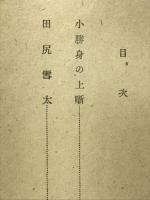 目次
小勝身の上噺…………
田尻雪太…………